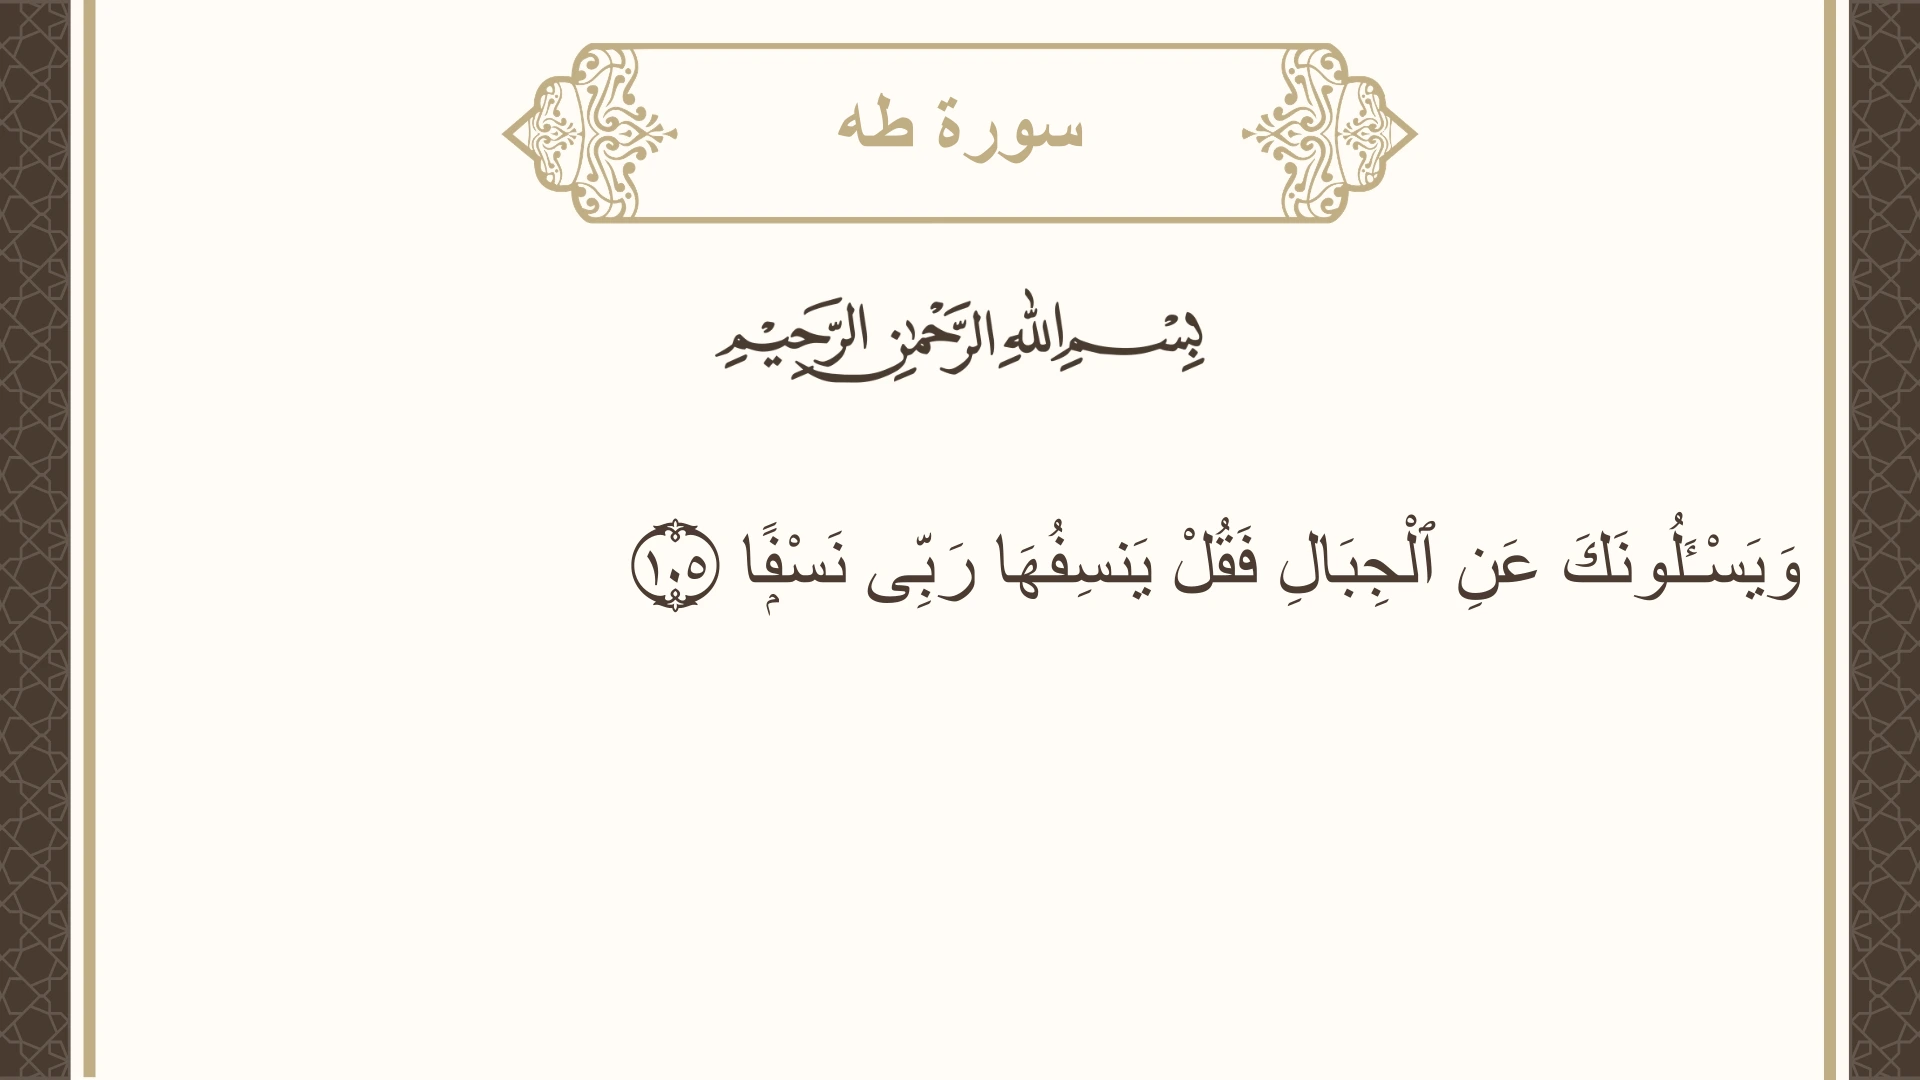 سورة طه
بِسْمِ اللهِ الرَّحْمٰنِ الرَّحِيْمِ
وَيَسْـَٔلُونَكَ عَنِ ٱلْجِبَالِ فَقُلْ يَنسِفُهَا رَبِّى نَسْفًۭا ١٠٥